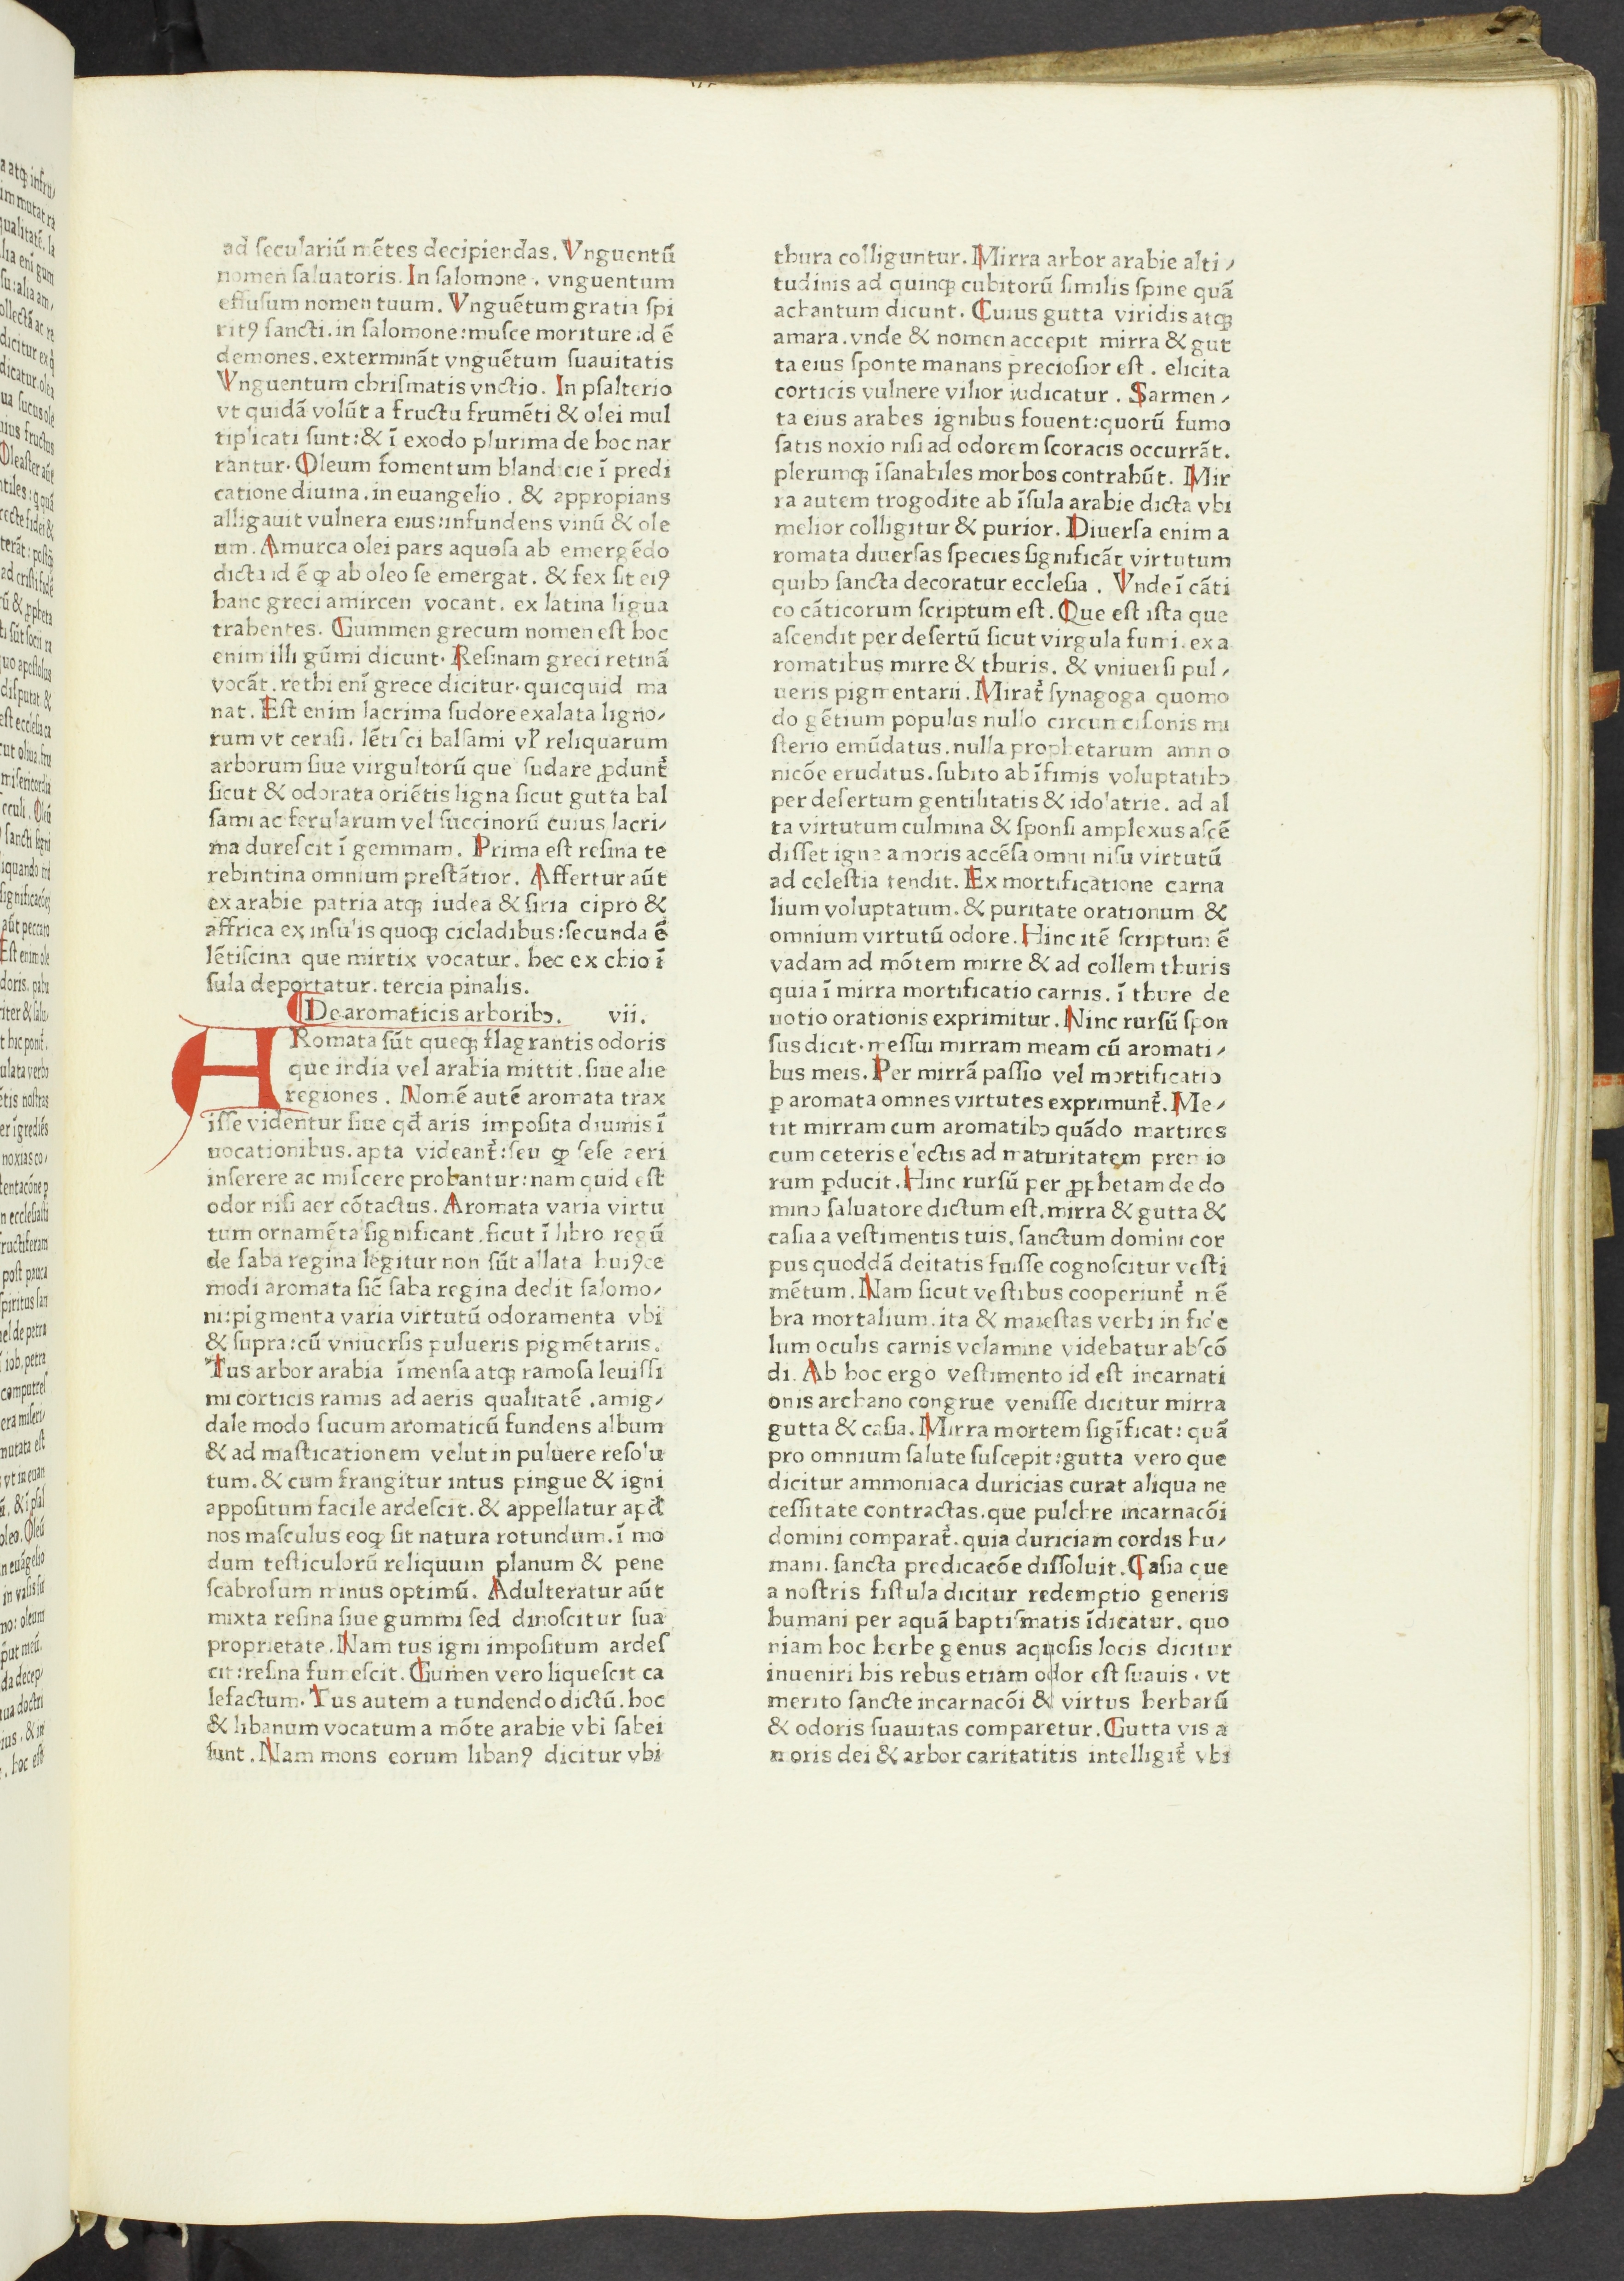 ad seculariū mētes decipiendas. Vnguentū
nomen saluatoris. In salomone. vnguentum
effusum nomen tuum. Vnguētum gratia spi
ritꝰ sancti. in salomone: musce moriture id ē
demones. extermināt vnguētum suauitatis
Vnguentum chrismatis vnctio. In psalterio
vt quidā volūt a fructu frumēti & olei mul
tiplicati sunt: & ī exodo plurima de hoc nar
rantur. Oleum fomentum blandicie ī predi
catione diuina. in euangelio. & appropians
alligauit vulnera eius: infundens vinū & ole
um. Amurca olei pars aquosa ab emergēdo
dicta id ē ꝙ ab oleo se emergat. & fex sit eiꝰ
hanc greci amircen vocant. ex latina ligua
trahentes. Gummen grecum nomen est hoc
enim illi gūmi dicunt. Resinam greci retinā
vocāt. rethi enī grece dicitur. quicquid ma
nat. Est enim lacrima sudore exalata ligno⸗
rum vt cerasi. lētisci balsami vl̕ reliquarum
arborum siue virgultorū que sudare ꝓdunt̕
sicut & odorata oriētis ligna sicut gutta bal
sami ac ferularum vel succinorū cuius lacri⸗
ma durescit ī gemmam. Prima est resina te
rebintina omnium prestātior. Affertur aūt
ex arabie patria atqꝫ iudea & siria cipro &
affrica ex insulis quoqꝫ cicladibus: secunda ē
lētiscina que mirtix vocatur. hec ex chio ī
sula deportatur. tercia pinalis.
De aromaticis arboribꝫ. vii.
ARomata sūt queqꝫ flagrantis odoris
que india vel arabia mittit. siue alie
regiones. Nomē autē aromata trax
isse videntur siue qđ aris imposita diuinis ī
uocationibus. apta videant̕: seu ꝙ sese aeri
inserere ac miscere probantur: nam quid est
odor nisi aer cōtactus. Aromata varia virtu
tum ornamēta significant. sicut ī libro regū
de saba regina legitur non sūt allata huiꝰce
modi aromata sic̄ saba regina dedit salomo⸗
ni: pigmenta varia virtutū odoramenta vbi
& supra: cū vniuersis pulueris pigmētariis.
Tus arbor arabia īmensa atqꝫ ramosa leuissi
mi corticis ramis ad aeris qualitatē. amig⸗
dale modo sucum aromaticū fundens album
& ad masticationem velut in puluere resolu
tum. & cum frangitur intus pingue & igni
appositum facile ardescit. & appellatur apđ
nos masculus eoqꝫ sit natura rotundum. ī mo
dum testiculorū reliquum planum & pene
scabrosum minus optimū. Adulteratur aūt
mixta resina siue gummi sed dinoscitur sua
proprietate. Nam tus igni impositum ardes
cit: resina fumescit. Gumen vero liquescit ca
lefactum. Tus autem a tundendo dictū. hoc
& libanum vocatum a mōte arabie vbi sabei
sunt. Nam mons eorum libanꝰ dicitur vbi
thura colliguntur. Mirra arbor arabie alti⸗
tudinis ad quinqꝫ cubitorū similis spine quā
achantum dicunt. Cuius gutta viridis atqꝫ
amara. vnde & nomen accepit mirra & gut
ta eius sponte manans preciosior est. elicita
corticis vulnere vilior iudicatur. Sarmen⸗
ta eius arabes ignibus fouent: quorū fumo
satis noxio nisi ad odorem scoracis occurrāt.
plerumqꝫ īsanabiles morbos contrahūt. Mir
ra autem trogodite ab īsula arabie dicta vbi
melior colligitur & purior. Diuersa enim a
romata diuersas species significāt virtutum
quibꝫ sancta decoratur ecclesia. Vnde ī cāti
co cāticorum scriptum est. Que est ista que
ascendit per desertū sicut virgula fumi. ex a
romatibus mirre & thuris. & vniuersi pul⸗
ueris pigmentarii. Mirat̕ synagoga quomo
do gētium populus nullo circuncisionis mi
sterio emūdatus. nulla prophetarum amno
nicōe eruditus. subito ab īfimis voluptatibꝫ
per desertum gentilitatis & idolatrie. ad al
ta virtutum culmina & sponsi amplexus ascē
disset igne amoris accēsa omni nisu virtutū
ad celestia tendit. Ex mortificatione carna
lium voluptatum. & puritate orationum &
omnium virtutū odore. Hinc itē scriptum ē
vadam ad mōtem mirre & ad collem thuris
quia ī mirra mortificatio carnis. ī thure de
uotio orationis exprimitur. Ninc rursū spon
sus dicit. messui mirram meam cū aromati⸗
bus meis. Per mirrā passio vel mortificatio
ꝑ aromata omnes virtutes exprimunt̕. Me⸗
tit mirram cum aromatibꝫ quādo martires
cum ceteris electis ad maturitatem premio
rum ꝑducit. Hinc rursū per ꝓphetam de do
mino saluatore dictum est. mirra & gutta &
casia a vestimentis tuis. sanctum domini cor
pus quoddā deitatis fuisse cognoscitur vesti
mētum. Nam sicut vestibus cooperiunt̕ mē
bra mortalium. ita & maiestas verbi in fide
lum oculis carnis velamine videbatur abscō
di. Ab hoc ergo vestimento id est incarnati
onis archano congrue venisse dicitur mirra
gutta & casia. Mirra mortem sigīficat: quā
pro omnium salute suscepit: gutta vero que
dicitur ammoniaca duricias curat aliqua ne
cessitate contractas. que pulchre incarnacōi
domini comparat̕. quia duriciam cordis hu⸗
mani. sancta predicacōe dissoluit. Casia que
a nostris fistula dicitur redemptio generis
humani per aquā baptismatis īdicatur. quo
niam hoc herbe genus aquosis locis dicitur
inueniri his rebus etiam odor est suauis. vt
merito sancte incarnacōi & virtus herbarū
& odoris suauitas comparetur. Gutta vis a
moris dei & arbor caritatitis intelligit̕ vbi